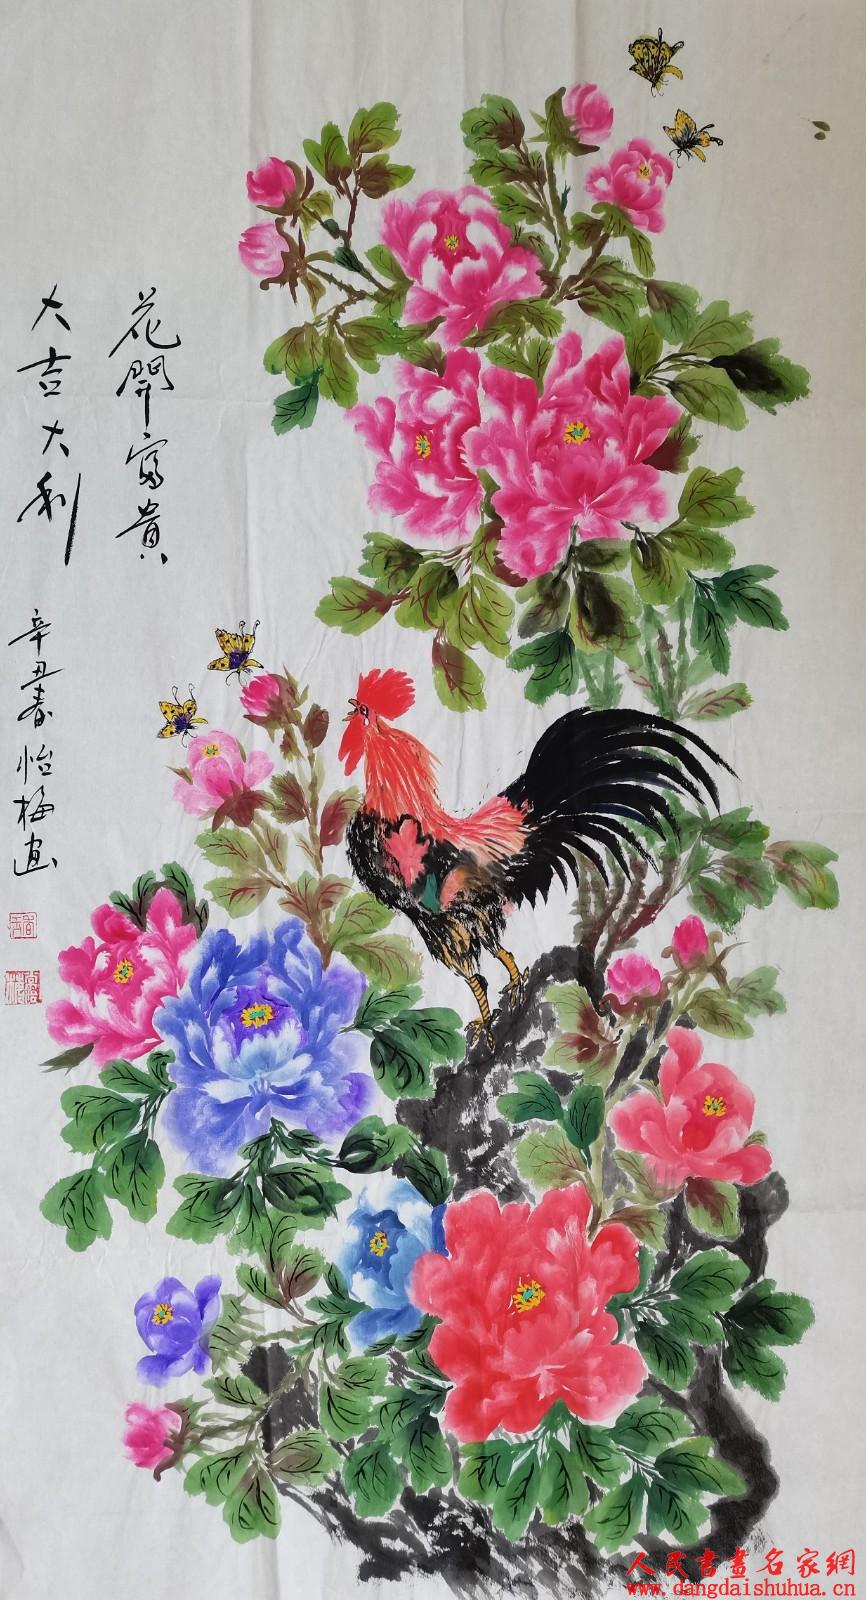 花開富貴
大吉大利
辛丑春怡梅画
人民書畫名家網
www.dangdaishuhua.cn